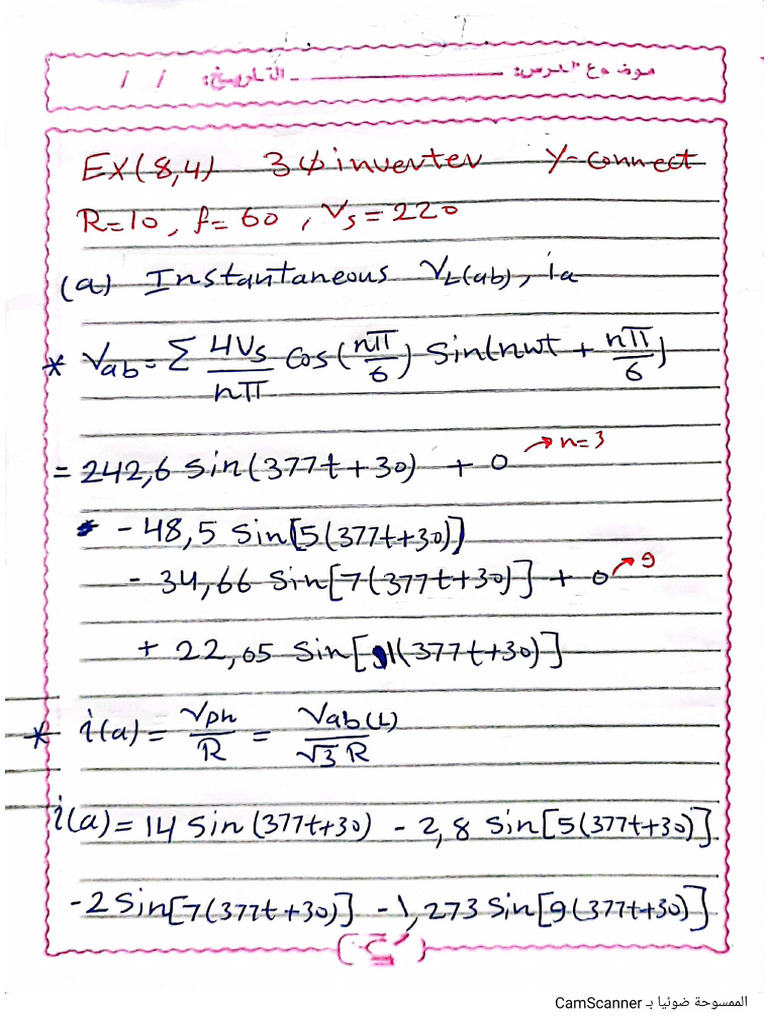 موضوع الدرس: ــــــــــــ التاريخ: / /
Ex(8,4) 3ϕ inverter Y-connect
R=10, f=60, Vs=220
(a) Instantaneous VL(ab), ia
* Vab = Σ 4Vs/nπ Cos(nπ/6) Sin(nωt + nπ/6)
= 242,6 sin(377t+30) + 0 → n=3
- 48,5 Sin[5(377t+30)]
- 34,66 Sin[7(377t+30)] + 0 ↗ 9
+ 22,05 Sin[11(377t+30)]
* i(a) = Vph/R = Vab(L)/√3 R
i(a) = 14 Sin(377t+30) - 2,8 Sin[5(377t+30)]
-2 Sin[7(377t+30)] - 1,273 Sin[9(377t+30)]
الممسوحة ضوئيا بـ CamScanner